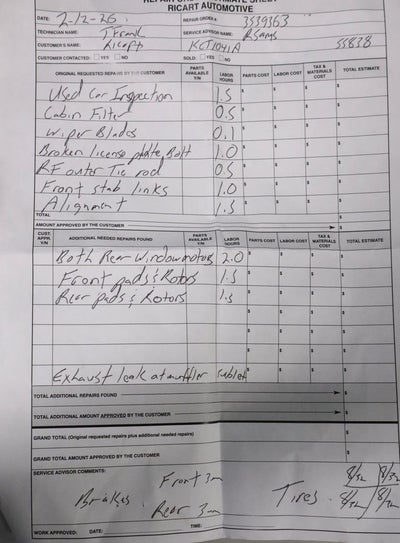 REPAIR ORDER ESTIMATE SHEET
RICART AUTOMOTIVE
DATE: 2-12-26 REPAIR ORDER# 3539363
TECHNICIAN NAME: TFrank SERVICE ADVISOR NAME:
CUSTOMER'S NAME: Ricart KCT1041A 55838
CUSTOMER CONTACTED: YES NO SOLD: YES NO
ORIGINAL REQUESTED REPAIRS BY THE CUSTOMER PARTS AVAILABLE Y/N LABOR HOURS PARTS COST LABOR COST TAX & MATERIALS COST TOTAL ESTIMATE
Used Car Inspection 1.5 $ $ $ $
Cabin Filter 0.5 $ $ $ $
Wiper Blades 0.1 $ $ $ $
Broken license plate Bolt 1.0 $ $ $ $
RF outer Tie rod 0.5 $ $ $ $
Front stab links 1.0 $ $ $ $
Alignment 1.5 $ $ $ $
TOTAL $
AMOUNT APPROVED BY THE CUSTOMER $
CUST. APPR. Y/N ADDITIONAL NEEDED REPAIRS FOUND PARTS AVAILABLE Y/N LABOR HOURS PARTS COST LABOR COST TAX & MATERIALS COST TOTAL ESTIMATE
Both Rear Window motors 2.0 $ $ $ $
Front pads & Rotors 1.5 $ $ $ $
Rear pads & Rotors 1.5 $ $ $ $
$ $ $ $
$ $ $ $
$ $ $ $
Exhaust leak at muffler sublet $ $ $ $
TOTAL ADDITIONAL REPAIRS FOUND $
TOTAL ADDITIONAL AMOUNT APPROVED BY THE CUSTOMER $
GRAND TOTAL (Original requested repairs plus additional needed repairs) $
GRAND TOTAL AMOUNT APPROVED BY THE CUSTOMER $
SERVICE ADVISOR COMMENTS:
Front 3m 8/32 8/32
Brakes Tires 8/32 8/32
Rear 3mm
WORK APPROVED: DATE: TIME: